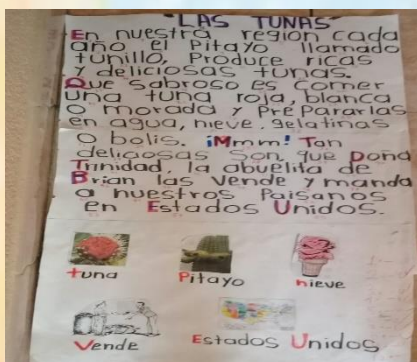 "LAS TUNAS"
En nuestra región cada
año el Pitayo llamado
tunillo, Produce ricas
y deliciosas tunas.
Que sabroso es comer
una tuna roja, blanca
o morada y Prepararlas
en agua, nieve, gelatinas
O bolis. ¡Mmm! Tan
deliciosas son, que Doña
Trinidad, la abuelita de
Brian las vende y manda
a nuestros Paisanos
en Estados Unidos.
tuna
Pitayo
nieve
Vende
Estados Unidos